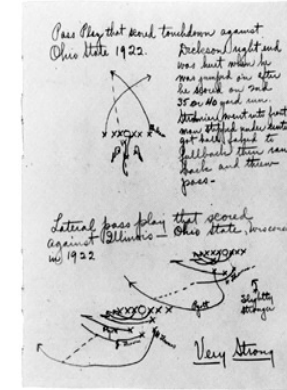 Pass Play that scored touchdown against
Ohio State 1922.
right end
was hurt when he
was jumped on after
he scored on 2nd
35 or 40 yard run.
went into
man stepped under center
got ball, faked to
fullback then ran
back and threw
pass-
Lateral pass play that scored
against Illinois - Ohio State,
in 1922
slightly
stronger
Very Strong